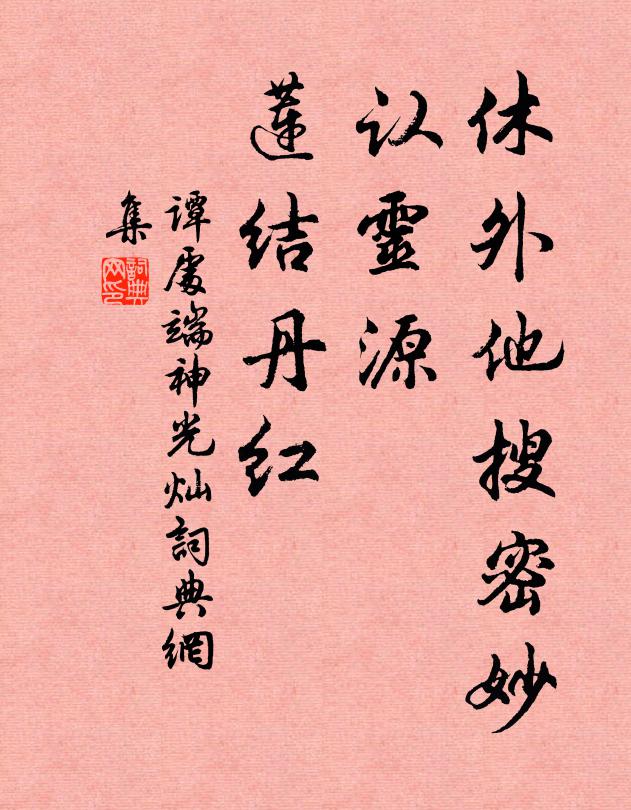 休外他搜密妙
认靈源
莲结丹红
谭處端神光灿詞典網
集
詞典
网印